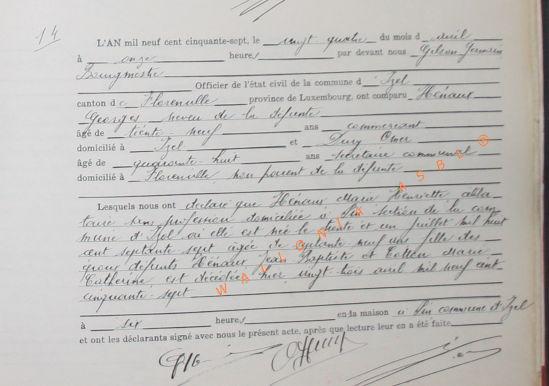 14
L'AN mil neuf cent cinquante-sept, le vingt quatre du mois d'avril
à onze heures par devant nous Gilson Germain
Bourgmestre
Officier de l'état civil de la commune d'Izel
canton de Florenville province de Luxembourg, ont comparu Hénaux
Georges, neveu de la défunte
âgé de trente neuf ans commercant
domicilié à Izel et Dury Omer
âgé de quarante huit ans secrétaire communal
domicilié à Florenville non parent de la défunte
Lesquels nous ont déclaré que Hénaux, Maria Henriette, céliba-
taire sans profession domiciliée à Pin section de la com-
mune d'Izel où elle est née le trente et un juillet mil huit
cent septante sept âgée de septante neuf ans fille des
époux défunts Hénaux, Jean Baptiste et Marie
Catherine, est décédée hier vingt trois avril mil neuf cent
cinquante-sept
à six heures en la maison à Pin commune d'Izel
et ont les déclarants signé avec nous le présent acte, après que lecture leur en a été faite.
WALLONIA ASBL ©